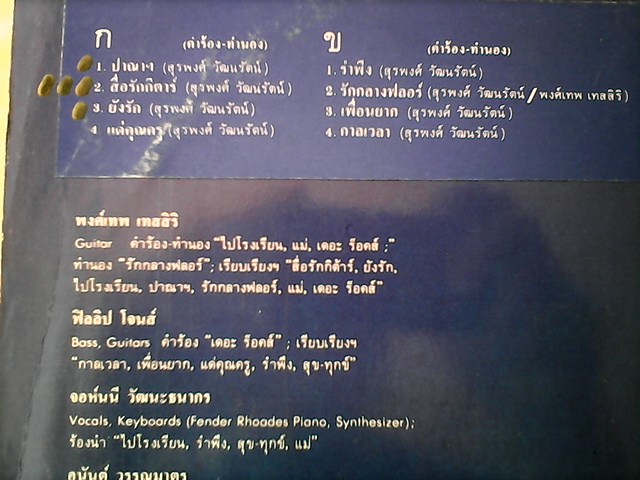 ก
(คำร้อง-ทำนอง)
1. ปาณาฯ (สุรพงศ์ วัฒนรัตน์)
2. สื่อรักกีตาร์ (สุรพงศ์ วัฒนรัตน์)
3. ยังรัก (สุรพงศ์ วัฒนรัตน์)
4. แด่คุณครู (สุรพงศ์ วัฒนรัตน์)
ข
(คำร้อง-ทำนอง)
1. รำพึง (สุรพงศ์ วัฒนรัตน์)
2. รักกลางฟลอร์ (สุรพงศ์ วัฒนรัตน์/พงศ์เทพ เทสสิริ)
3. เพื่อนยาก (สุรพงศ์ วัฒนรัตน์)
4. กาลเวลา (สุรพงศ์ วัฒนรัตน์)
พงศ์เทพ เทสสิริ
Guitar คำร้อง-ทำนอง "ไปโรงเรียน, แม่, เดอะ ร็อคส์ ;"
ทำนอง "รักกลางฟลอร์" ; เรียบเรียงฯ "สื่อรักกีต้าร์, ยังรัก,
ไปโรงเรียน, ปาณาฯ, รักกลางฟลอร์, แม่, เดอะ ร็อคส์"
ฟิลลิป โจนส์
Bass, Guitars คำร้อง "เดอะ ร็อคส์" ; เรียบเรียงฯ
"กาลเวลา, เพื่อนยาก, แด่คุณครู, รำพึง, สุข-ทุกข์"
จอห์นนี่ วัฒนะธนากร
Vocals, Keyboards (Fender Rhoades Piano, Synthesizer);
ร้องนำ "ไปโรงเรียน, รำพึง, สุข-ทุกข์, แม่"
อนันต์ วรรณมาตร